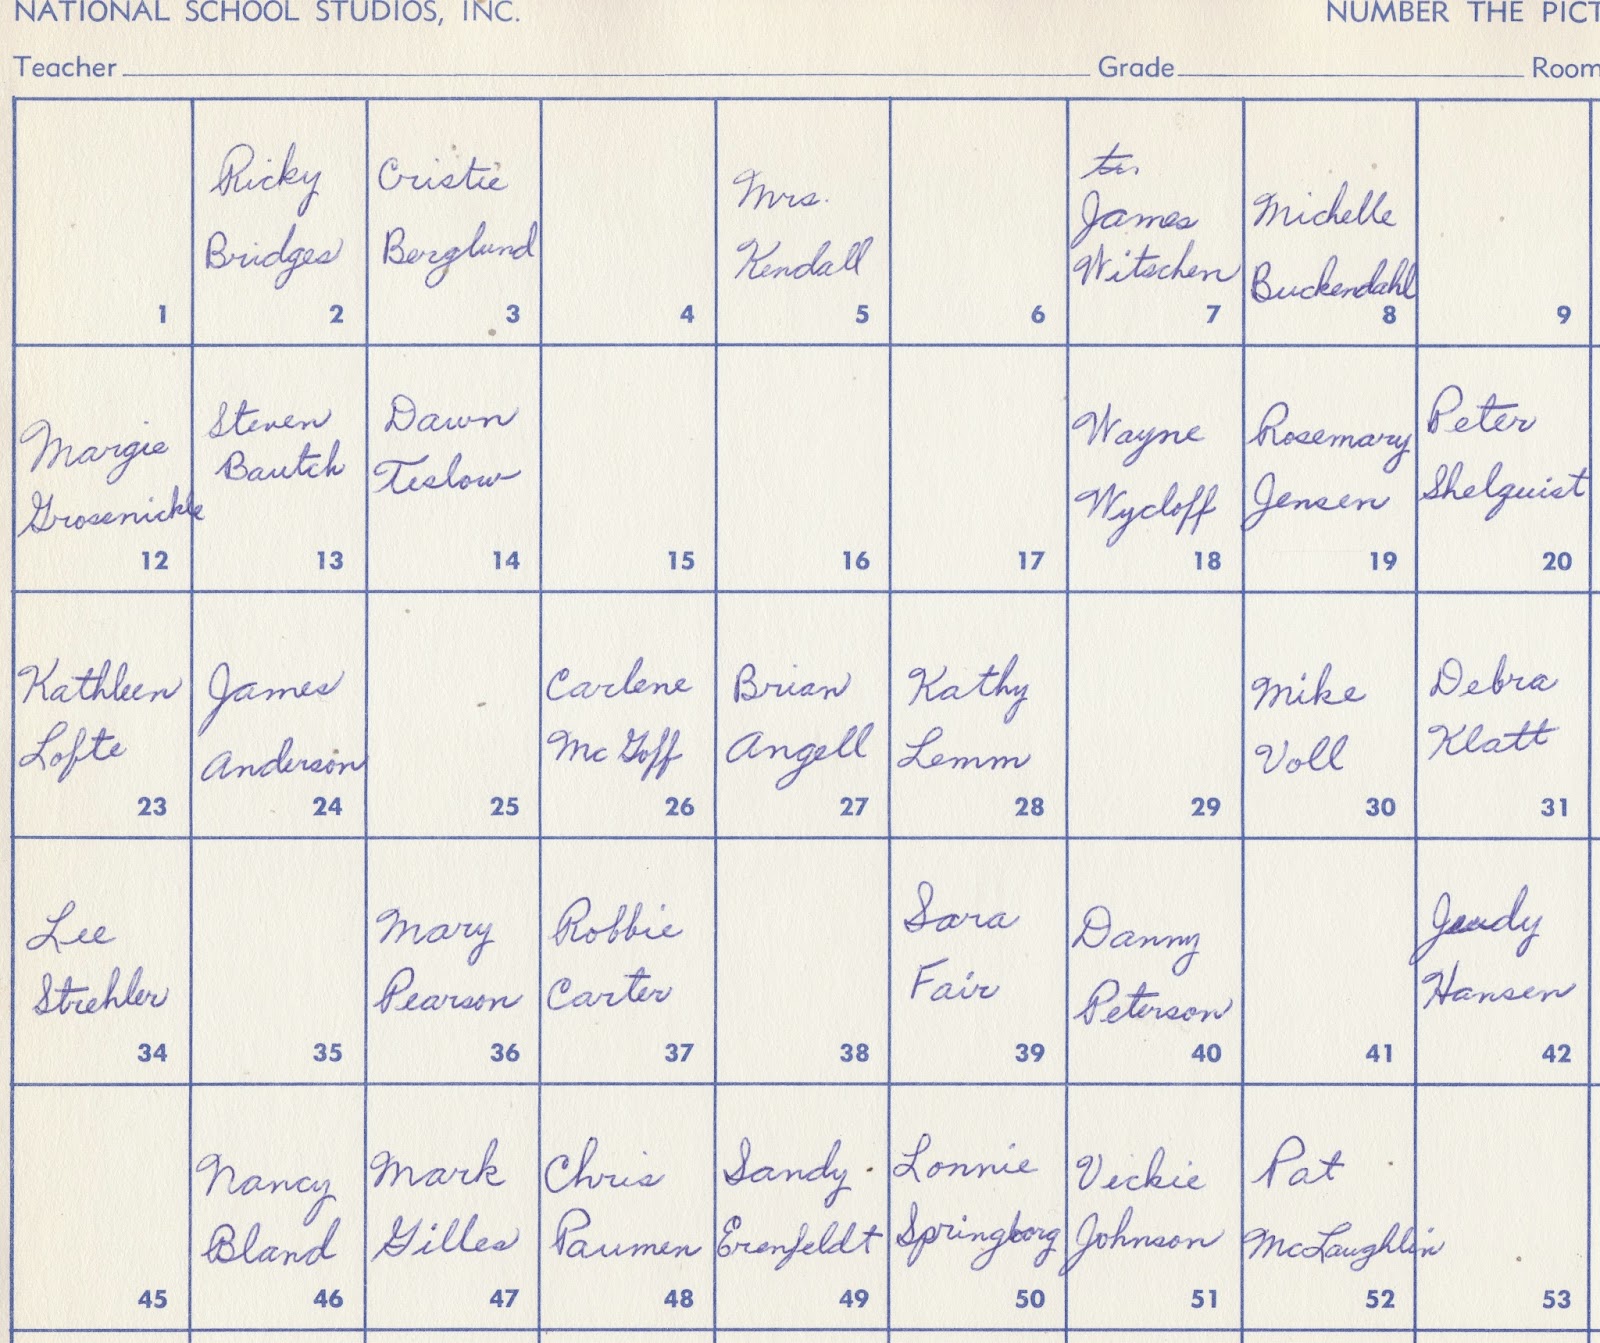 NATIONAL SCHOOL STUDIOS, INC. NUMBER THE PICT
Teacher Grade Room
1
Ricky
Bridges
2
Cristie
Berglund
3
4
Mrs.
Kendall
5
6
James
Witschen
7
Michelle
Buckendahl
8
9
Margie
Grosenickle
12
Steven
Bautch
13
Dawn
Teslow
14
15
16
17
Wayne
Wycloff
18
Rosemary
Jensen
19
Peter
Shelquist
20
Kathleen
Lofte
23
James
Anderson
24
25
Carlene
McGoff
26
Brian
Angell
27
Kathy
Lemm
28
29
Mike
Voll
30
Debra
Klatt
31
Lee
Strehler
34
35
Mary
Pearson
36
Robbie
Carter
37
38
Sara
Fair
39
Danny
Peterson
40
41
Judy
Hansen
42
45
Nancy
Bland
46
Mark
Gilles
47
Chris
Paumen
48
Sandy
Erenfeldt
49
Lonnie
Springborg
50
Vickie
Johnson
51
Pat
McLaughlin
52
53